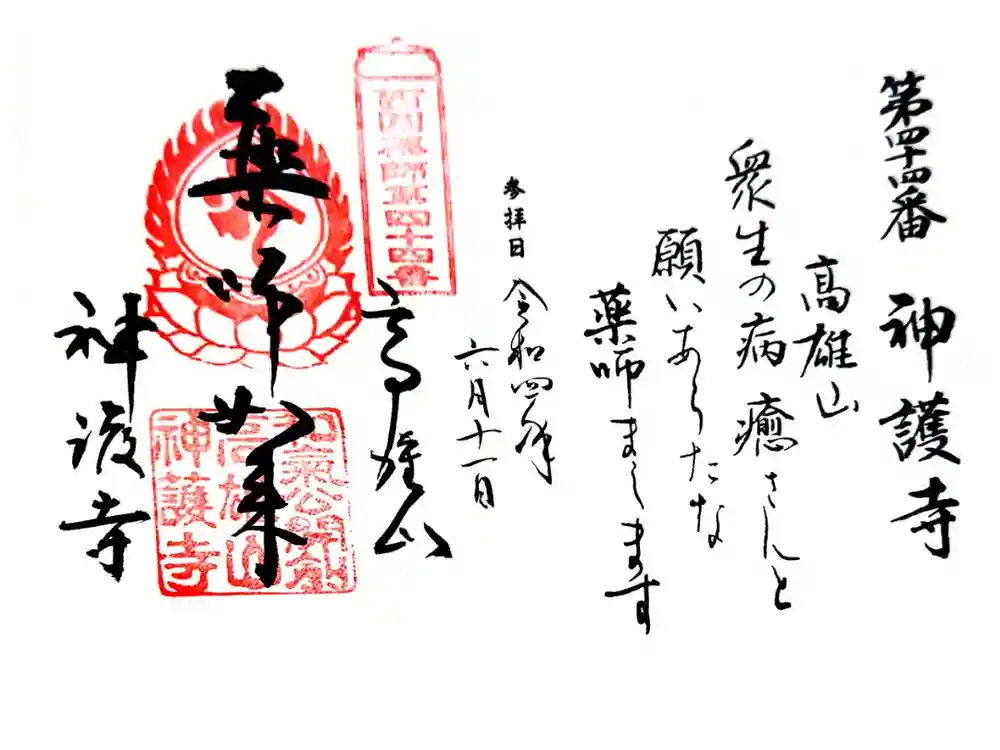 第四十四番 神護寺
高雄山
衆生の病 癒さんと
願いあらたな
薬師まします
参拝日 令和四年
六月十一日
西国薬師第四十四番
高雄山
薬師如来
神護寺
和氣公開創
高雄山
神護寺